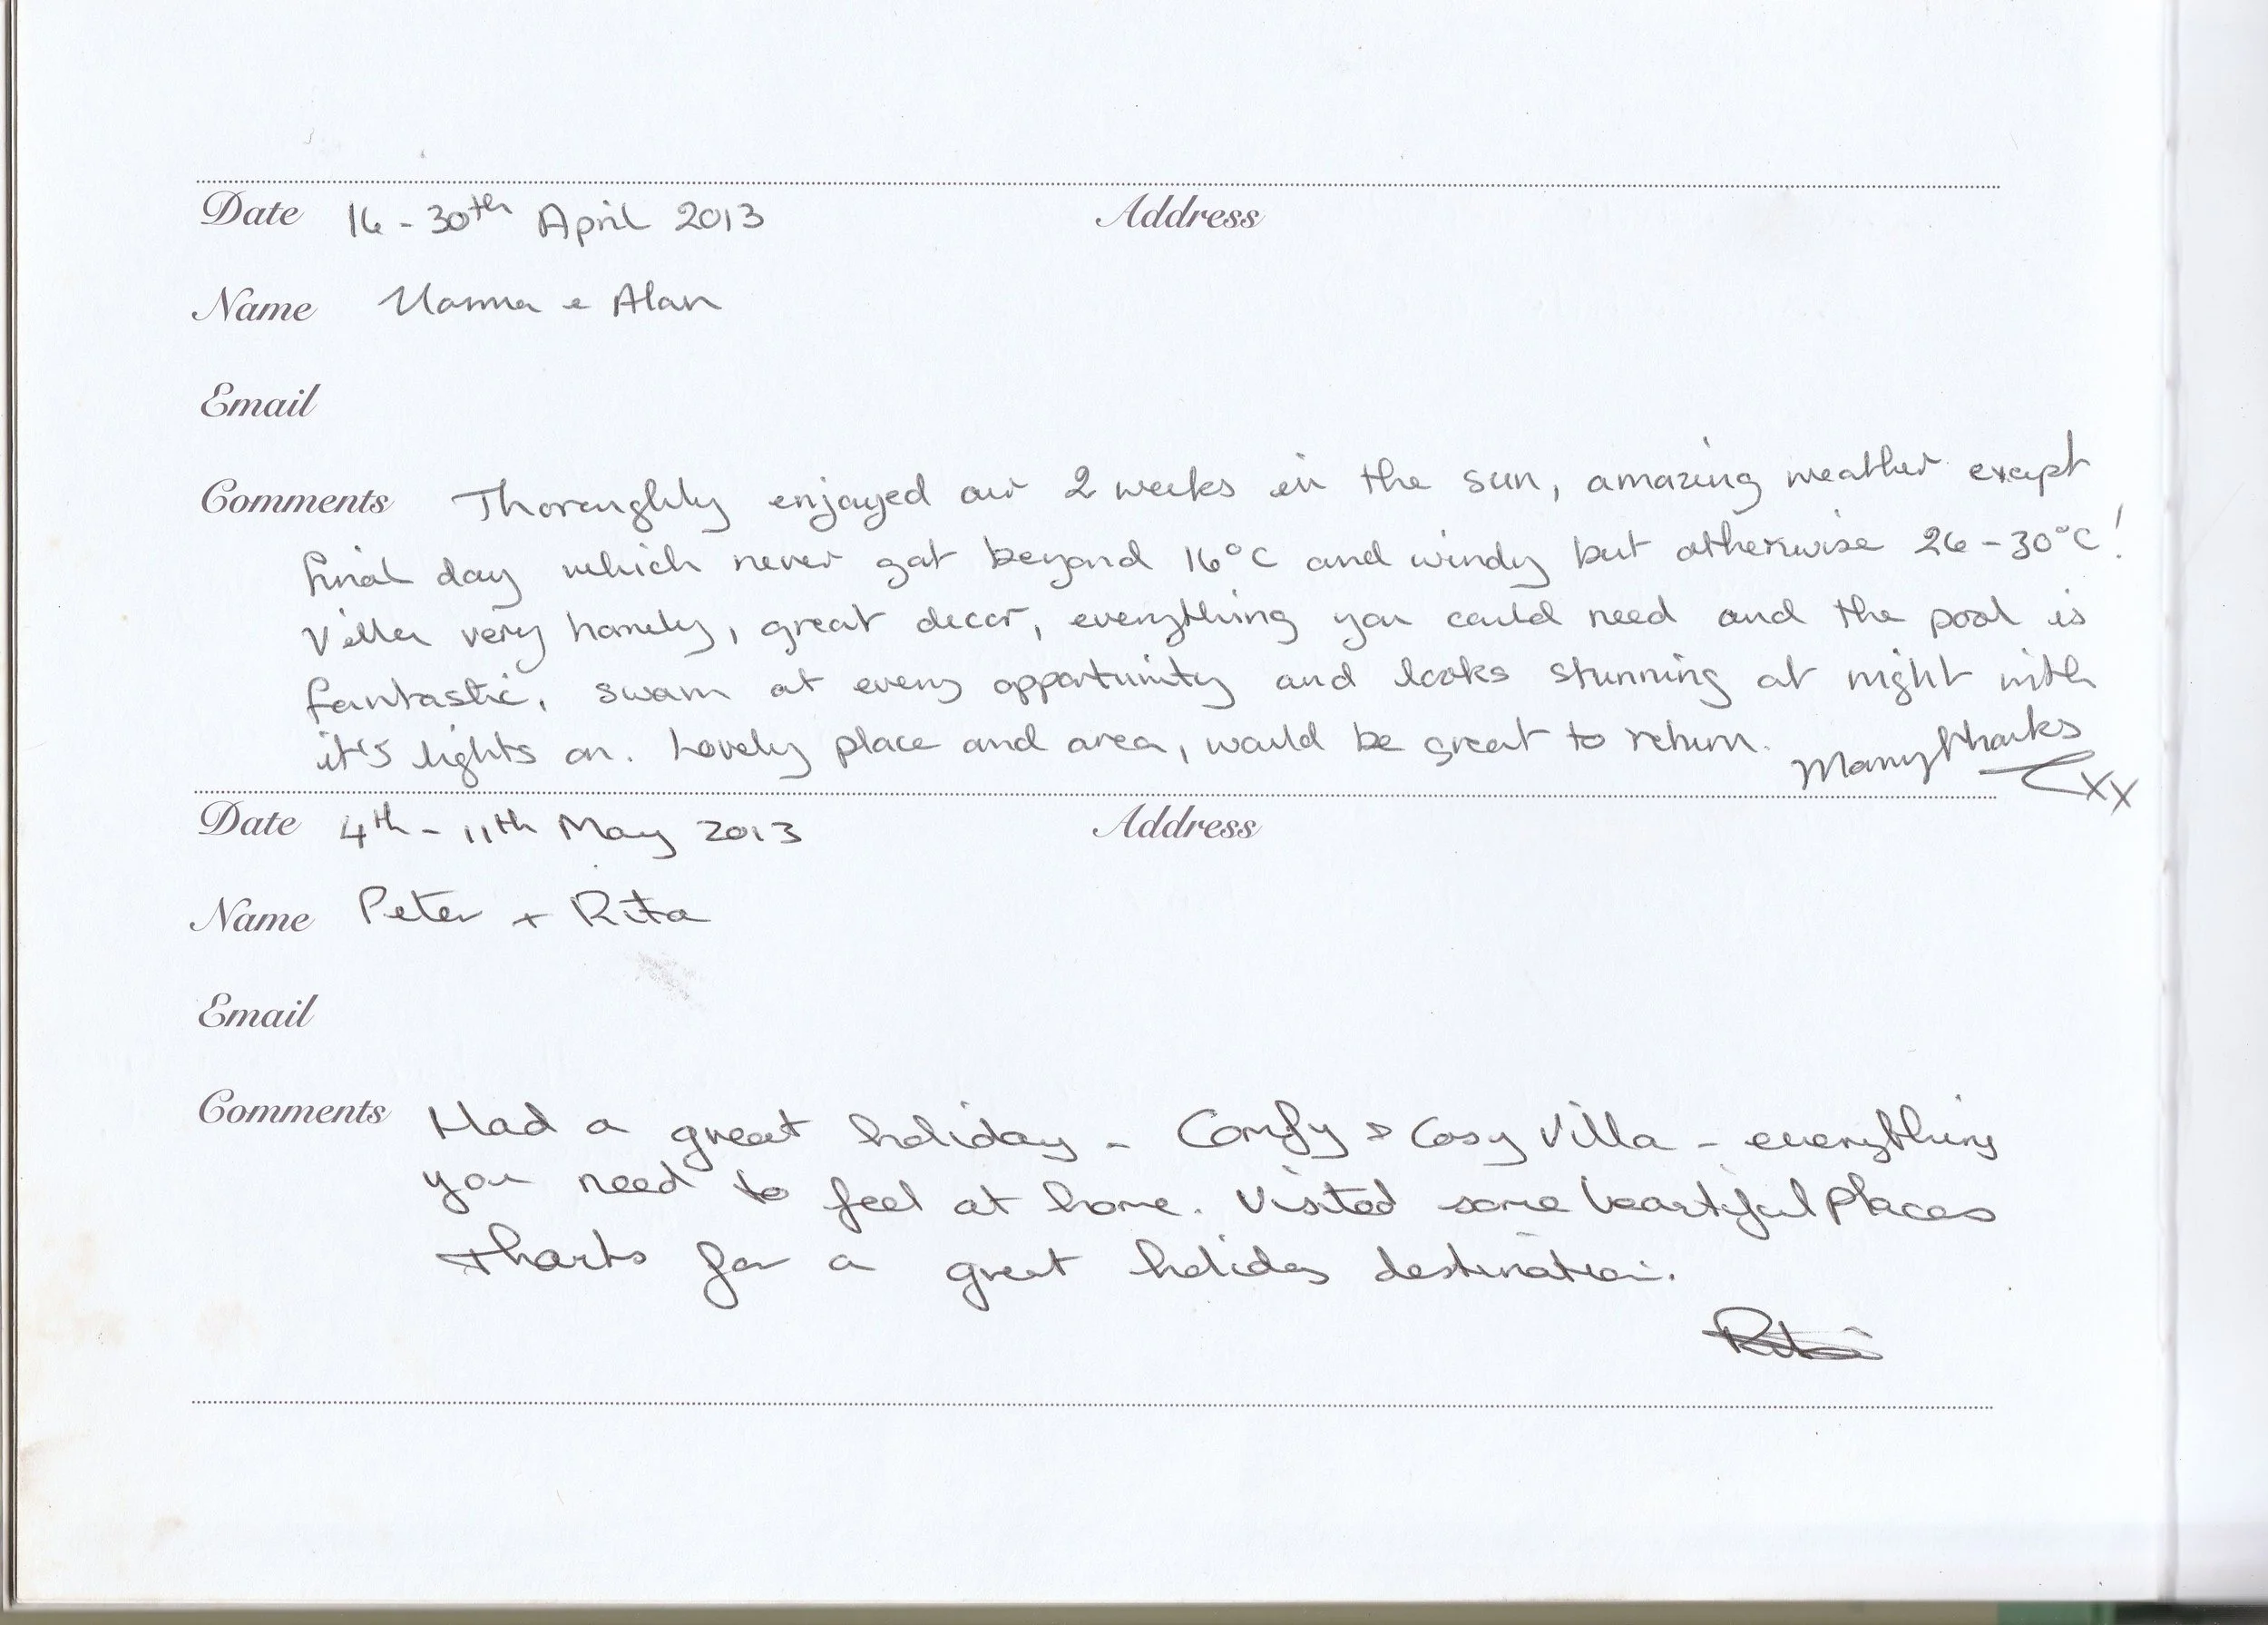 Date 16 - 30th April 2013 Address
Name & Alan
Email
Comments Thoroughly enjoyed our 2 weeks in the sun, amazing weather except
final day which never got beyond 16°C and windy but otherwise 26 - 30°C!
Villa very homely, great decor, everything you could need and the pool is
fantastic, swam at every opportunity and looks stunning at night with
it's lights on. Lovely place and area, would be great to return. Many thanks
xx
Date 4th - 11th May 2013 Address
Name Peter + Rita
Email
Comments Had a great holiday - Comfy & Cosy Villa - everything
you need to feel at home. Visited some beautiful places
thanks for a great holiday destination.
Rita